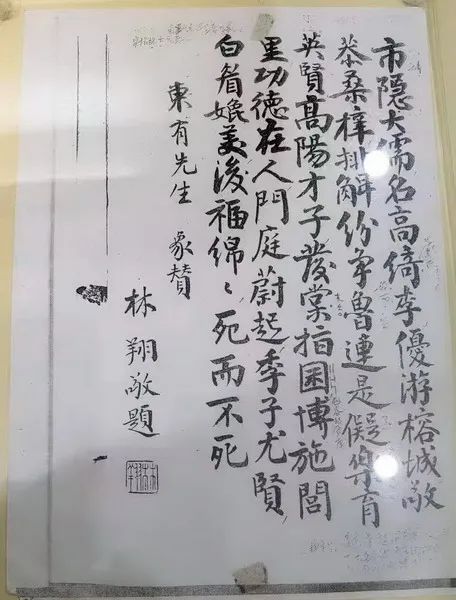 市隐大儒名高綺季優游榕城敬
恭桑梓排解紛争魯連是儗樂育
英賢高陽才子發棠指囷博施閭
里功德在人門庭蔚起季子尤賢
白眉媲美後福綿〻死而不死
東有先生 象贊
林翔敬題